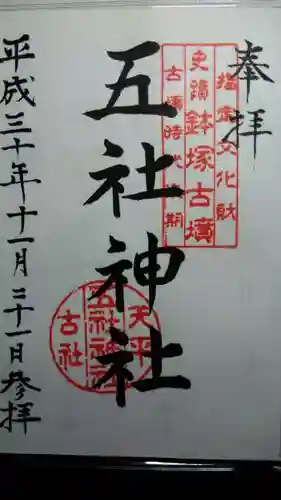 奉拝
指定文化財
史蹟鉢塚古墳
五社神社
天平
五社神社
古社
平成三十年十一月二十一日参拝